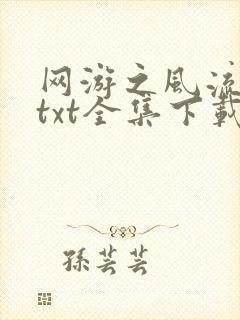 网游之风流
txt全集下载
孫芸芸